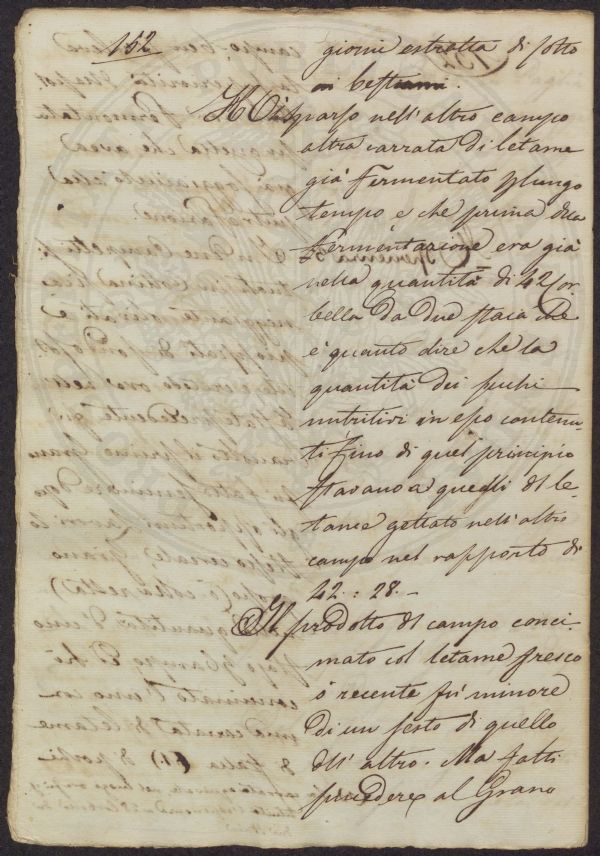 152
giorni estratta di sotto
ai bestiami.
Ho sparso nell'altro campo
altra carrata di letame
già fermentato p lungo
tempo, e che prima della
fermentazione era già
nella quantità di 42 Cor-
bella da due staia che
è quanto dire che la
quantità dei succhi
nutritivi in esso contenu-
ti fino di quel principio
stavano a quegli del le-
tame gettato nell'altro
campo nel rapporto di
42 : 28. -
Il prodotto del campo conci-
mato col letame fresco
o recente fu minore
di un sesto di quello
dell'altro. Ma fatti
succedere al Grano